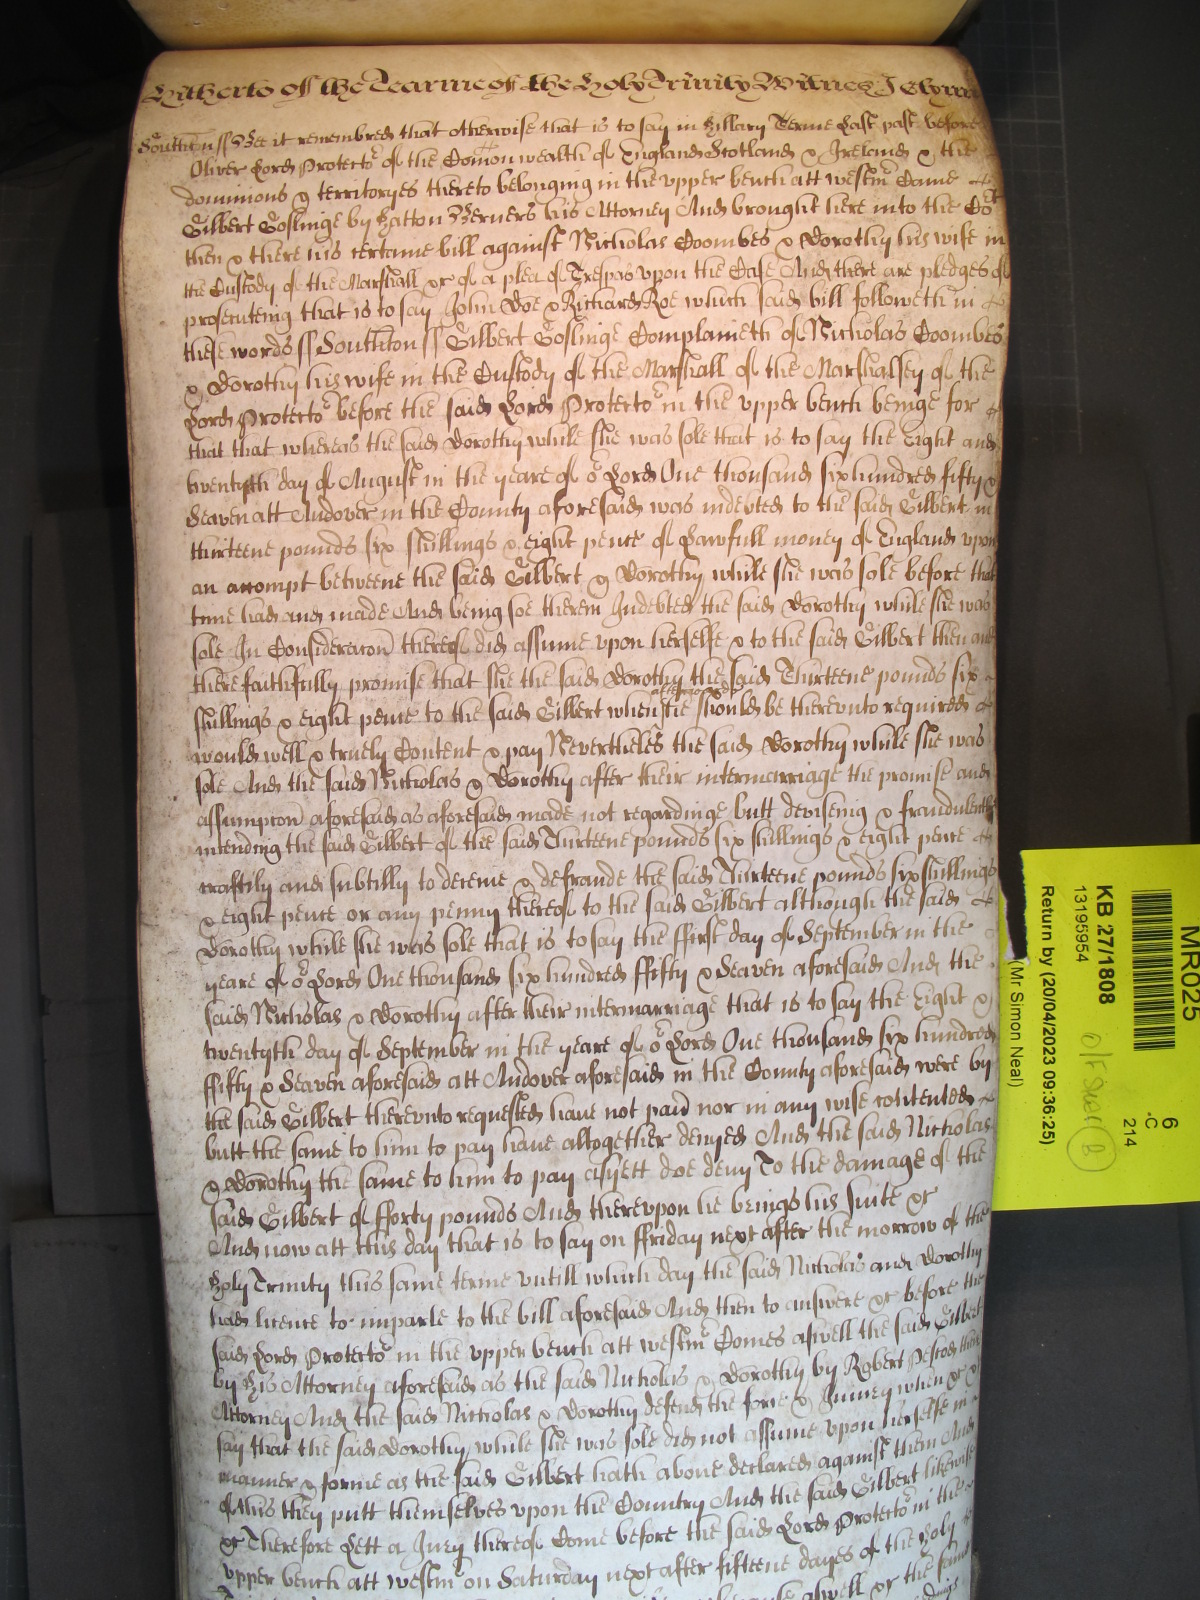 Hitherto of the Tearme of the Holy Trinity Witnes J Glynn
Southton ss Bee it remembred that otherwise that is to say in Hillary Terme Last past before
Oliver Lord Protector of the Comonwealth of England Scotland & Ireland & the
dominions & territoryes thereto belonging in the upper bench att westmr Came
Gilbert Goslinge by Hatton Berners his Attorney And brought here into the Cort
then & there his certaine bill against Nicholas Coombes & Dorothy his wife in
the Custody of the Marshall &c of a plea of Trespas upon the Case And there are pledges of
prosecuteing that is to say John Doe & Richard Roe which said bill followeth in
these words ss Southton ss Gilbert Goslinge Complaineth of Nicholas Coombes
& Dorothy his wife in the Custody of the Marshall of the Marshalsey of the
Lord Protector before the said Lord Protector in the upper bench beinge for
that that whereas the said Dorothy while she was sole that is to say the Eight and
twentyth day of August in the yeare of or Lord One thousand six hundred fifty &
Seaven att Andover in the County aforesaid was indebted to the said Gilbert in
thirteene pounds six shillings & eight pence of Lawfull money of England upon
an accompt betweene the said Gilbert & Dorothy while she was sole before that
time had and made And being soe therein Indebted the said Dorothy while she was
sole In Consideracon thereof did assume upon herselfe & to the said Gilbert then and
there faithfully promise that she the said Dorothy the said Thirteene pounds six
shillings & eight pence to the said Gilbert when she afterwards should be thereunto required
would well & truely Content & pay Neverthelesse the said Dorothy while she was
sole And the said Nicholas & Dorothy after their intermarriage the promise and
assumpcon aforesaid as aforesaid made not regardinge butt deviseing & fraudulently
intending the said Gilbert of the said Thirteene pounds six shillings & eight pence
craftily and subtilly to deceive & defraude the said Thirteene pounds six shillings
& eight pence or any penny thereof to the said Gilbert although the said
Dorothy while she was sole that is to say the ffirst day of September in the
yeare of or Lord One thousand six hundred ffifty & Seaven aforesaid And the
said Nicholas & Dorothy after their intermarriage that is to say the Eight &
twentyth day of September in the yeare of or Lord One thousand six hundred
ffifty & Seaven aforesaid att Andover aforesaid in the County aforesaid were by
the said Gilbert thereunto requested have not paid nor in any wise contented
butt the same to him to pay have altogether denyed And the said Nicholas
& Dorothy the same to him to pay asyett doe deny To the damage of the
said Gilbert of fforty pounds And thereupon he brings his suite &c
And now att this day that is to say on ffriday next after the morrow of the
Holy Trinity this same terme untill which day the said Nicholas and Dorothy
had licence to imparle to the bill aforesaid And then to answere &c before the
said Lord Protector in the upper bench att westmr Comes aswell the said Gilbert
by his Attorney aforesaid as the said Nicholas & Dorothy by Robert Pescod their
Attorney And the said Nicholas & Dorothy defend the force & Injurey when &c &
say that the said Dorothy while she was sole did not assume upon herselfe in
manner & forme as the said Gilbert hath above declared against them And
of this they putt themselves upon the Country And the said Gilbert likewise
&c Therefore Lett a Jury thereof Come before the said Lord Protector in the
upper bench att westmr on Saturday next after fifteene dayes of the Holy
aswell &c the same
MR025
KB 27/1808
13195954
Return by (20/04/2023 09:36:25)
(Mr Simon Neal)
6
-C
214
B